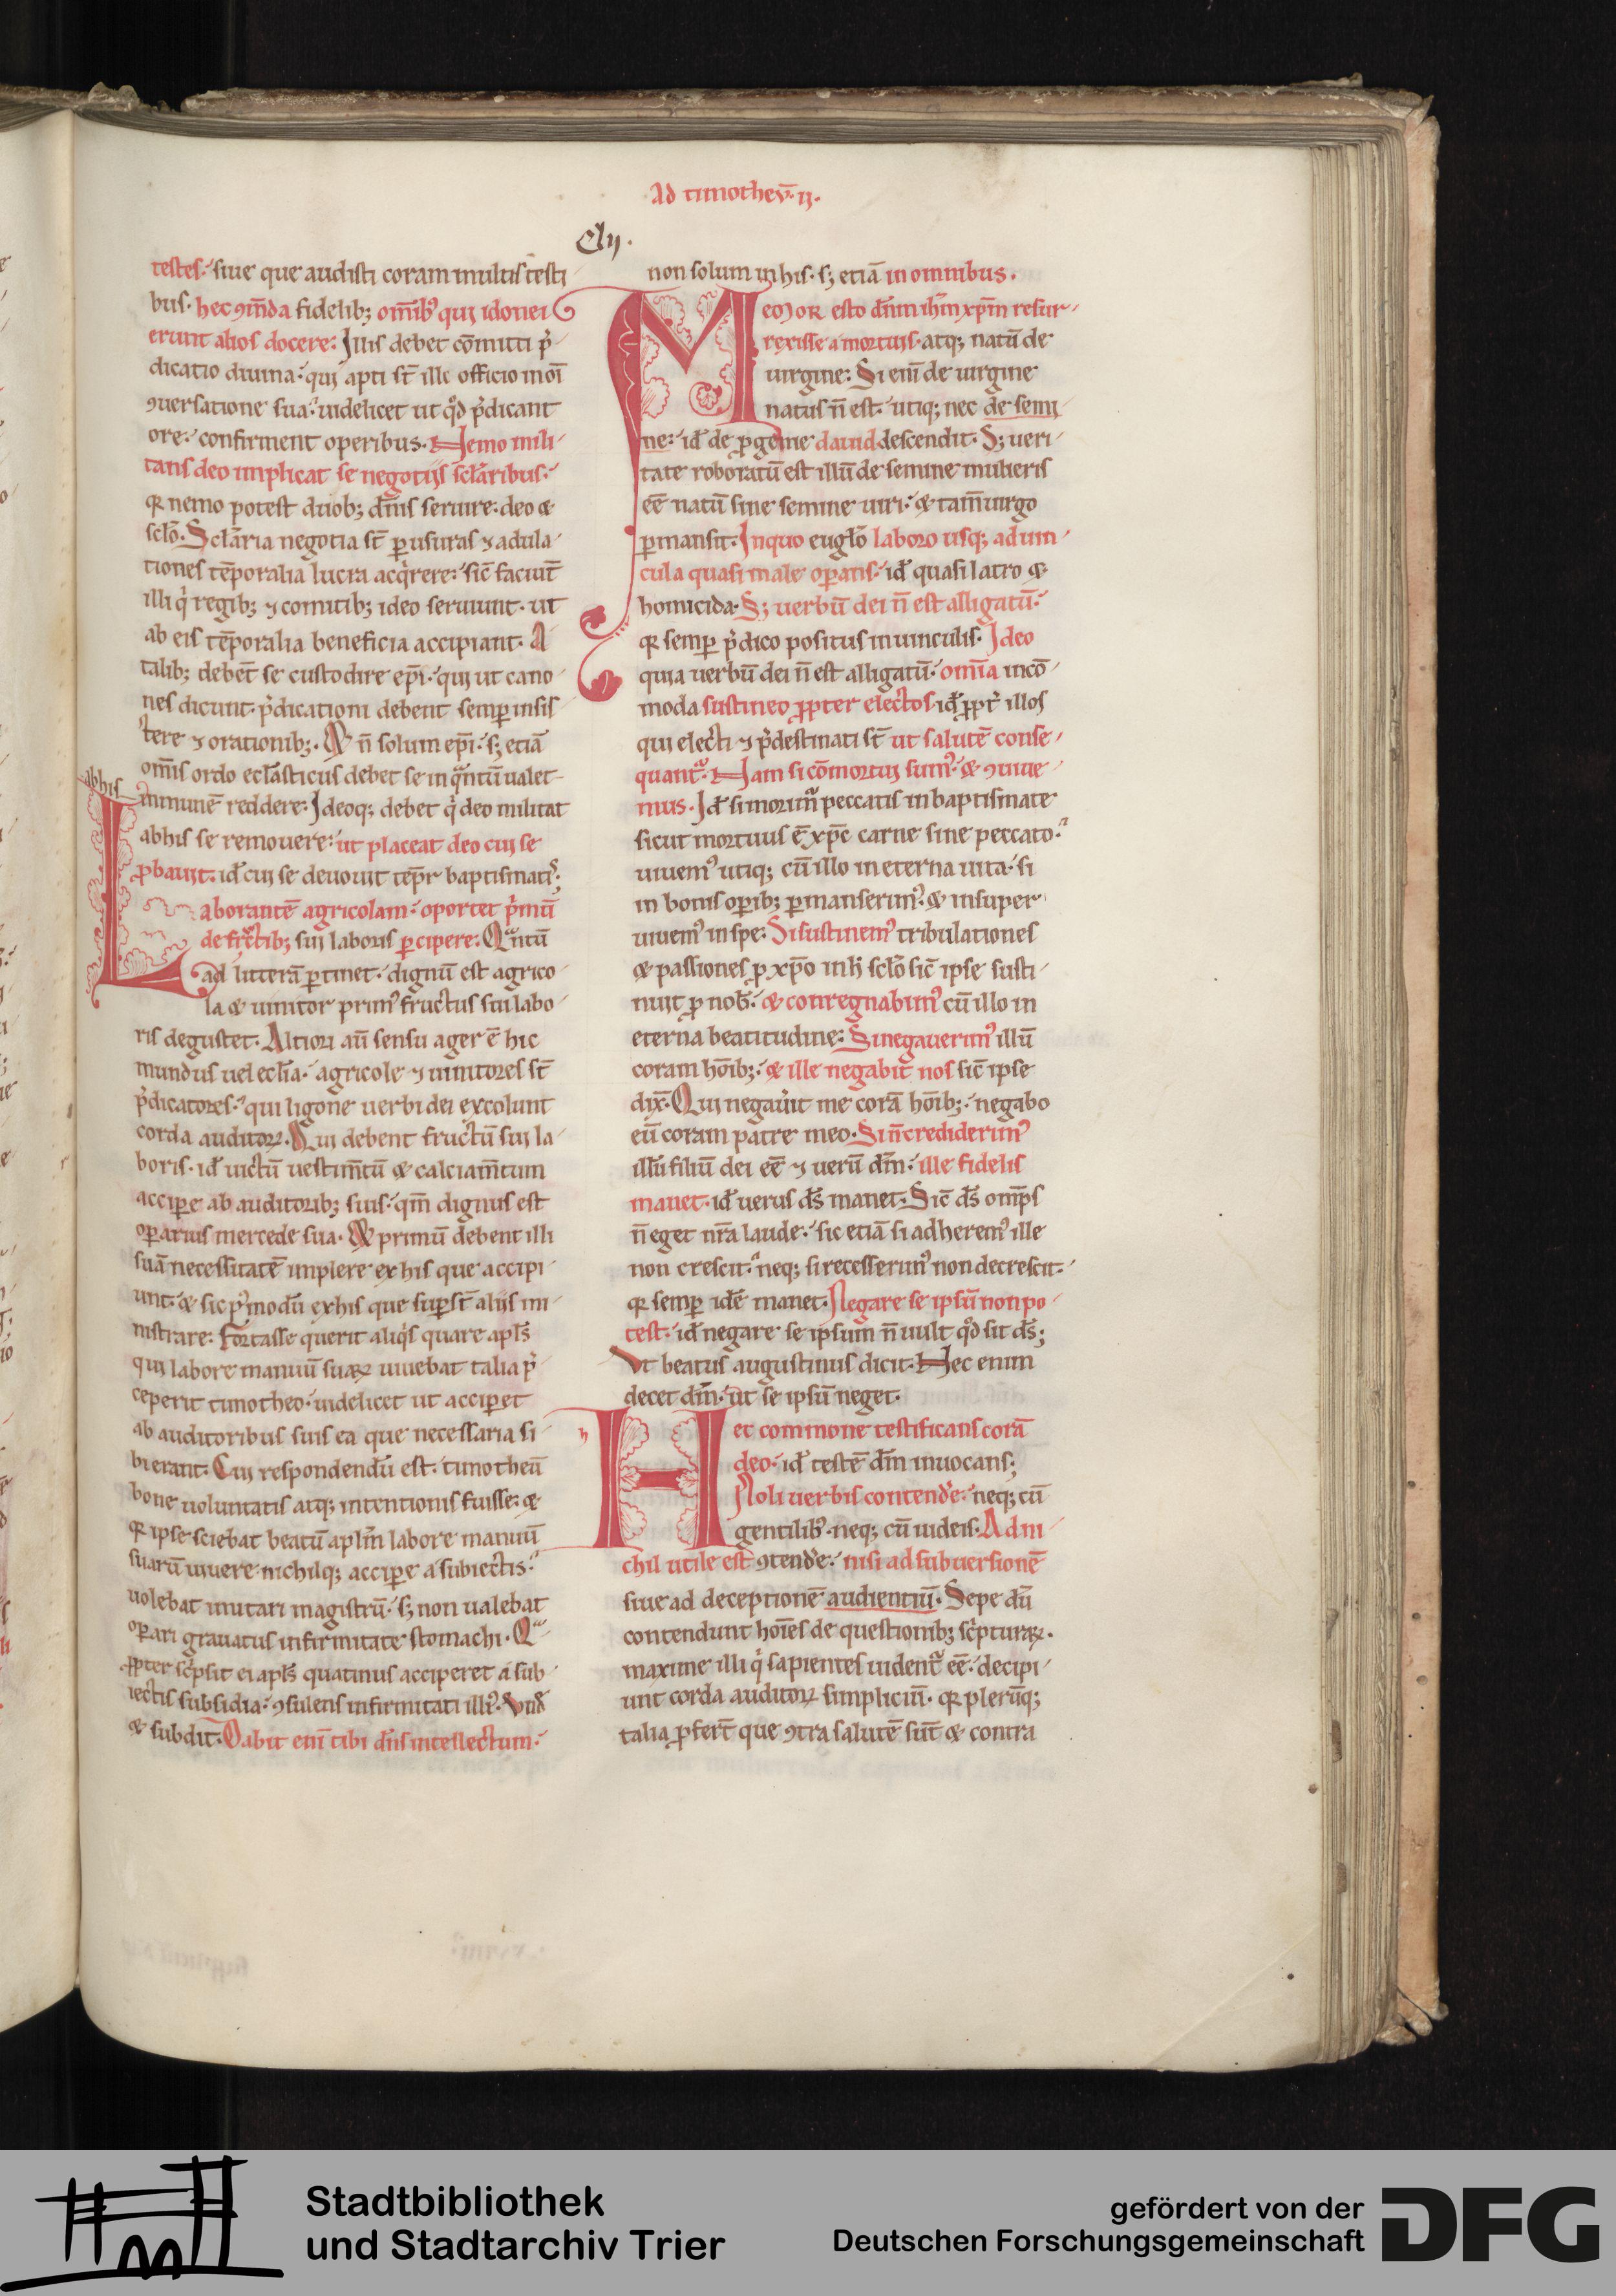 Ad timotheū·ij·
Clij·
testes·siue que audisti coram multis testi
bus·hec ꝯm̄da fidelib; om̄ibꝰ qui idonei
erunt alios docere: Illis debet cōmitti p̄
dicatio diuina·qui apti st̄ ille officio in oī
ꝯuersatione sua·uidelicet ut qd̄ p̄dicant
ore·confirment operibus·Nemo mili
tans deo implicat se negotijs scl̄aribus·
qr nemo potest duob; dn̄is seruire·deo &
scl̄o·Scl̄aria negotia st̄ ꝑ usuras ⁊ adula
tiones tēporalia lucra acq̇rere·sic̄ faciūt
illi q̇ regib; ⁊ comitib; ideo seruiunt·ut
ab eis tēporalia beneficia accipiant·A
talib; debet se custodire ep̄i·qui ut cano
nes dicunt·p̄dicationi debent semꝑ insis
tere ⁊ orationib;·Et n̄ solum ep̄i·s; etiā
om̄is ordo eccl̄asticus debet se in q̄ntū ualet
abhis
inmunē reddere: Ideoq; debet q̇ deo militat
abhis se remouere·ut placeat deo cui se
ꝓbauit·id̄ cui se deuouit tēpr̄ baptismatis;
Laborantē agricolam·oportet p̄mū
de fructib; sui laboris ꝑcipere: Qn̄tū
ad litterā ꝑtinet·dignū est agrico
la & uinitor primꝰ fructus sui labo
ris degustet·Altiori aū sensu ager ē hic
mundus uel eccl̄ia·agricole ⁊ uinitores st̄
p̄dicatores·qui ligone uerbi dei excolunt
corda auditoꝝ·Qui debent fructū sui la
boris·id̄ uictū uestim̄tū & calciam̄tum
acciꝑe ab auditorib; suis·qm̄ dignus est
oꝑarius mercede sua·Et primū debent illi
suā necessitatē implere ex his que accipi
unt·& sic p̄modū ex his que suꝑst̄ alijs mi
nistrare: Fortasse querit aliq̇s quare apl̄s
qui labore manuū suaꝝ uiuebat talia p̄
ceperit timotheo·uidelicet ut acciꝑet
ab auditoribus suis ea que necessaria si
bi erant·Cui respondendū est·timotheū
bone uoluntatis atq; intentionis fuisse·&
qr ipse sciebat beatū aplm̄ labore manuū
suarū uiuere nichilq; acciꝑe a subiectis·
uolebat imitari magistrū·s; non ualebat
oꝑari grauatus infirmitate stomachi·Qua
ꝓpter sc̄psit ei apl̄s quatinus acciperet a sub
iectis subsidia·ꝯsulens infirmitati illiꝰ·Vnd̄
& subdit·Dabit enī tibi dn̄s intellectum·
non solum in his·s; etiā in omnibus·
Memor esto dn̄m ihm̄ xp̄m resur
rexisse a mortuis·atq; natū de
uirgine: Si enī de uirgine
natus n̄ est·utiq; nec de semi
ne·id̄ de ꝓgenie dauid descendit·S; ueri
tate roboratū est illū de semine mulieris
eē natū sine semine uiri·& tam̄ uirgo
ꝑmansit·In quo eugl̄o laboro usq; ad uin
cula quasi male oꝑans·id̄ quasi latro &
homicida·S; uerbū dei n̄ est alligatū·
qr semꝑ p̄dico positus in uinculis·Ideo
quia uerbū dei n̄ est alligatū·om̄ia incō
moda sustineo ꝓpter electos·id̄ ꝓpt̄ illos
qui electi ⁊ p̄destinati st̄ ut salutē conse
quantr̄·Nam si cōmortui sumꝰ·& ꝯuiue
mus·Id̄ si morimr̄ peccatis in baptismate
sicut mortuus ē xp̄c carne sine peccato·
uiuemꝰ utiq; cū illo in eterna uita·si
in bonis oꝑib; ꝑmanserimꝰ·& insuper
uiuemꝰ in spe: Si sustinemꝰ tribulationes
& passiones ꝓ xp̄o in h̄ scl̄o sic̄ ipse susti
nuit ꝓ nob̄·& conregnabimꝰ cū illo in
eterna beatitudine: Si negauerimꝰ illū
coram hōib;·& ille negabit nos sic̄ ipse
dix̄·Qui negau̇it me corā hōib;·negabo
eū coram patre meo·Si n̄ crediderimꝰ
illū filiū dei eē ⁊ uerū dm̄·ille fidelis
manet·id̄ uerus ds̄ manet·Sic̄ ds̄ omp̄s
n̄ eget nr̄a laude·sic etiā si adheremꝰ ille
non crescit·neq; si recesserimꝰ non decrescit·
qr semꝑ idē manet·Negare se ipsū non po
test·id̄ negare se ipsum n̄ uult qd̄ sit ds̄;
Vt beatus augustinus dicit·Nec enim
decet dm̄·ut se ipsū neget·
Hec commone testificans corā
deo·id̄ testē dm̄ inuocans;
Noli uerbis contendˀe·neq; cū
gentilibꝰ·neq; cū iudeis·Ad ni
chil utile est ꝯtendˀe·nisi ad subuersionē
siue ad deceptionē audientiū·Sepe dū
contendunt hoīes de questionib; sc̄pturaꝝ·
maxime illi q̇ sapientes uidentr̄ eē·decipi
unt corda auditoꝝ simpliciū·qr plerūq;
talia ꝓfert̄ que ꝯtra salutē sūt & contra
Stadtbibliothek
und Stadtarchiv Trier
gefördert von der
Deutschen Forschungsgemeinschaft
DFG